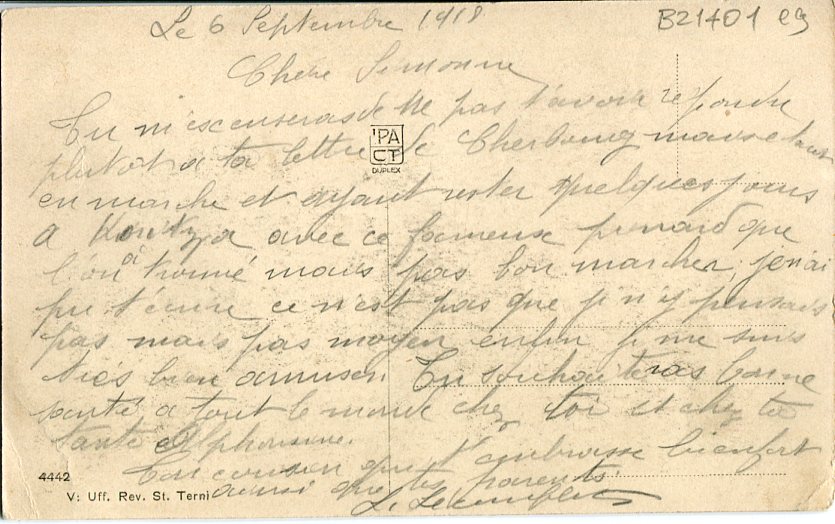 B21401 eg
Le 6 Septembre 1918
Chère Simonne
Tu m'escenseras de ne pas t'avoir repondu
plutot a ta lettre de Cherbourg mais etant
en marche et ayant rester quelques jours
a Koritza avec ce fameuse pinard que
l'on a trouvé mais pas bon marcher, je n'ai
pu t'ecrire ce n'est pas que j n'y pensais
pas mais pas moyen enfin j me suis
très bien amuser. Tu souhaiteras bonne
santé a tout le monde chez toi et chez ta
tante Alphonsine.
Ton cousin qui t'embrasse bien fort
ainsi que tes parents.
L.
PACT
DUPLEX
4442
V: Uff. Rev. St. Terni